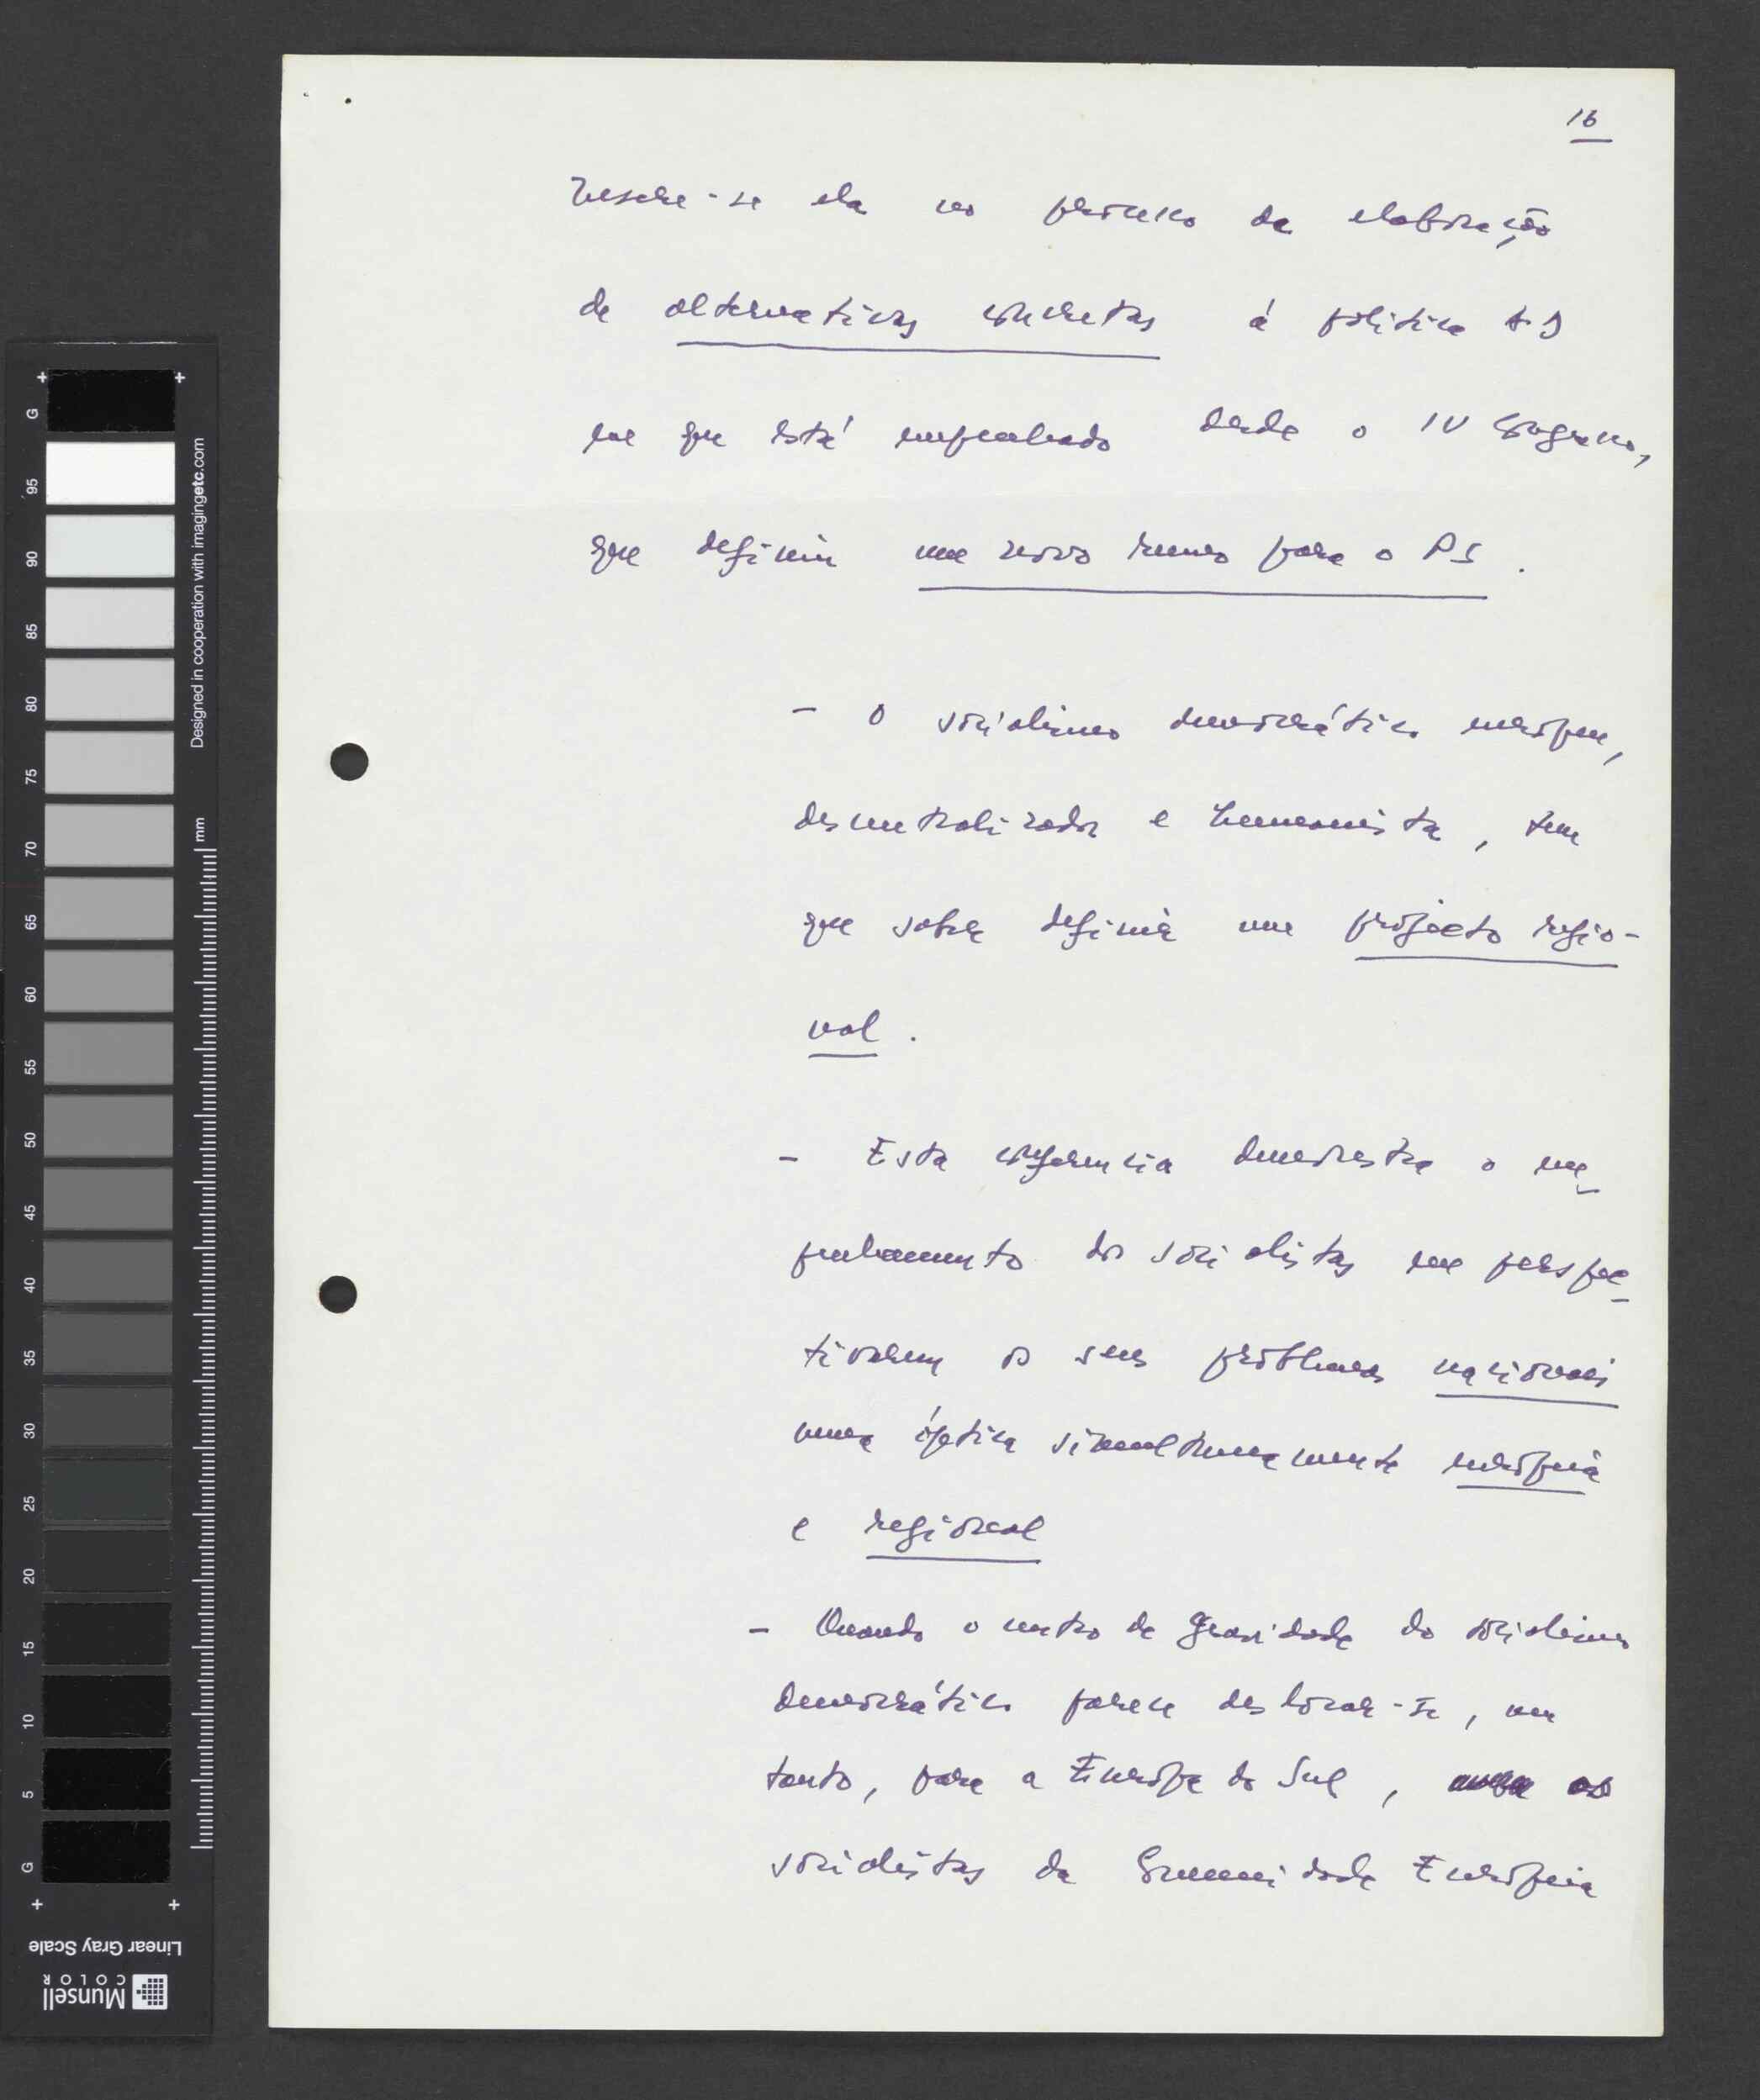 16
Insere-se ela no processo de elaboração
de alternativas concretas à política AD
em que está empenhado desde o IV Congresso,
que definiu um novo rumo para o PS.
- O socialismo democrático europeu,
descentralizador e humanista, tem
que saber definir um projecto regio-
nal.
- Esta conferência demonstra o em-
penhamento dos socialistas em perspec-
tivarem os seus problemas nacionais
numa óptica simultaneamente europeia
e regional
- Quando o centro de gravidade do socialismo
democrático parece deslocar-se, um
tanto, para a Europa do Sul, os
socialistas da Comunidade Europeia
G 95 90 85 80 75 70 65 60 55 50 45 40 35 30 25 20 15 10 5 G
Designed in cooperation with imagingetc.com
mm
Linear Gray Scale
Munsell
COLOR